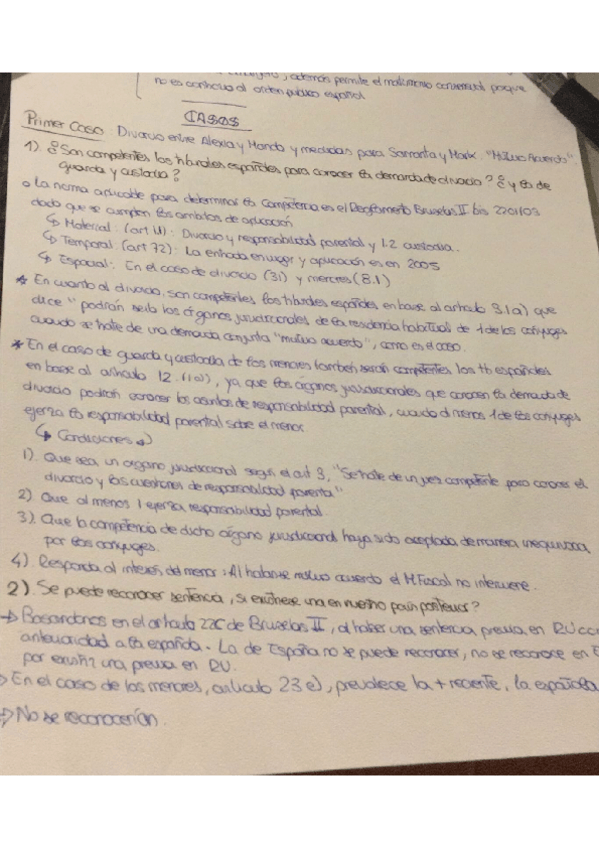 , además permite el matrimonio consensual porque
no es contrario al orden público español
CASOS
Primer Caso Divorcio entre Alexia y Manda y medidas para Samanta y Mark. "Mutuo Acuerdo".
1) ¿Son competentes los tribunales españoles para conocer la demanda de divorcio? ¿y la de
guarda y custodia?
La norma aplicable para determinar la Competencia es el Reglamento Bruselas II bis 2201/03
dado que se cumplen los ámbitos de aplicación
↳ Material: (art 1.1): Divorcio y responsabilidad parental y 1.2 custodia.
↳ Temporal: (art 72): La entrada en vigor y aplicación es en 2005
↳ Espacial: En el caso de divorcio (3.1) y menores (8.1)
* En cuanto al divorcio, son competentes los tribunales españoles en base al artículo 3.1.a) que
dice "podrán serlo los órganos jurisdiccionales de la residencia habitual de 1 de los cónyuges
cuando se trate de una demanda conjunta "mutuo acuerdo", como es el caso.
* En el caso de guarda y custodia de los menores también serán competentes los tb españoles
en base al artículo 12.1(a), ya que los órganos jurisdiccionales que conocen la demanda de
divorcio podrán conocer los asuntos de responsabilidad parental, cuando al menos 1 de los cónyuges
ejerza la responsabilidad parental sobre el menor
↳ Condiciones
1). Que sea un organo jurisdiccional según el art 3, "Se trate de un juez competente para conocer el
divorcio y las cuestiones de responsabilidad parental"
2) Que al menos 1 ejerza responsabilidad parental.
3). Que la competencia de dicho órgano jurisdiccional haya sido aceptada de manera inequívoca
por los conyuges.
4). Responda al interés del menor: Al haber mutuo acuerdo el M.Fiscal no interviene.
2). Se puede reconocer sentencia, si existiese una en nuestro país posterior?
→ Basandonos en el artículo 22C de Bruselas II, al haber una sentencia previa en RU con
anterioridad a la española. La de España no se puede reconocer, no se reconoce en
por existir una previa en RU.
→ En el caso de los menores, artículo 23 e), prevalece la + reciente, la española
⇒ No se reconocerían.